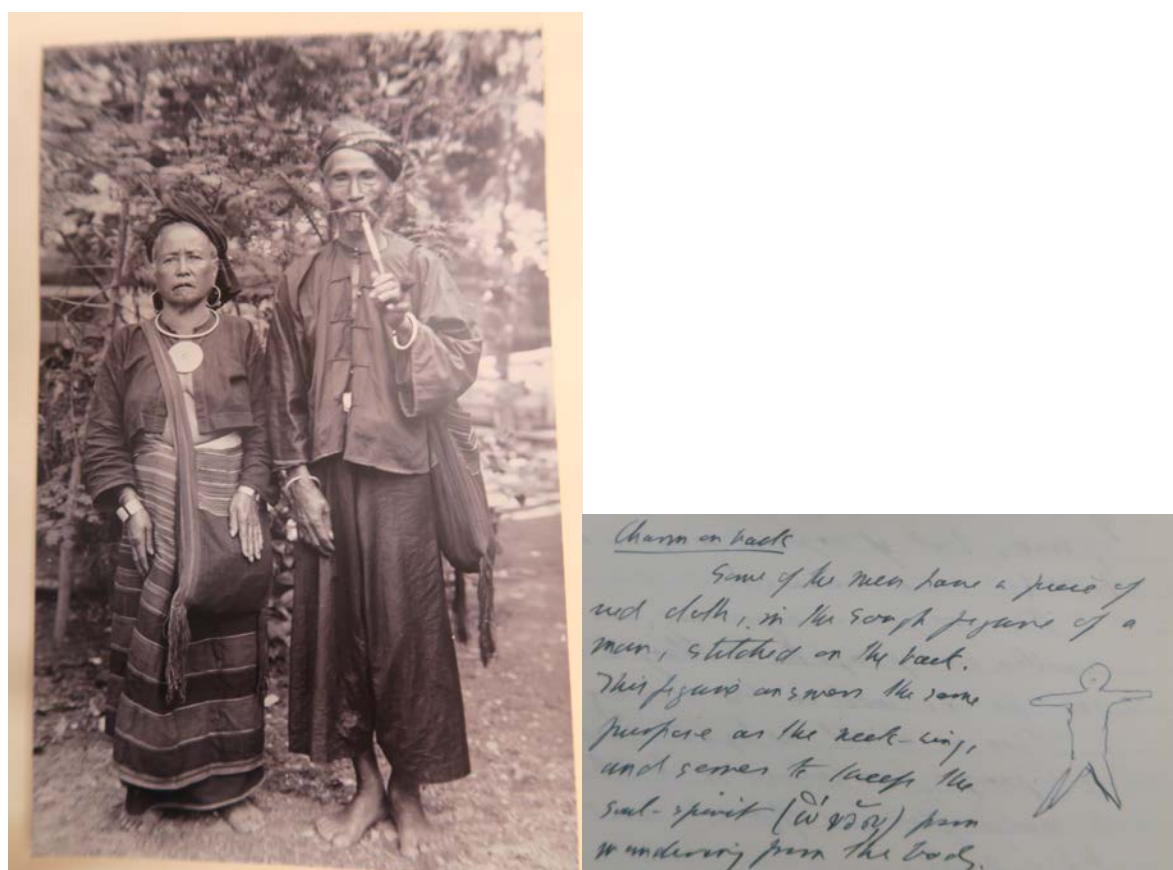 Charm on back
Some of the men have a piece of
red cloth, in the rough figure of a
man, stitched on the back.
This figure answers the same
purpose as the neck-ring,
and serves to keep the
soul-spirit ( ) from
wandering from the body.